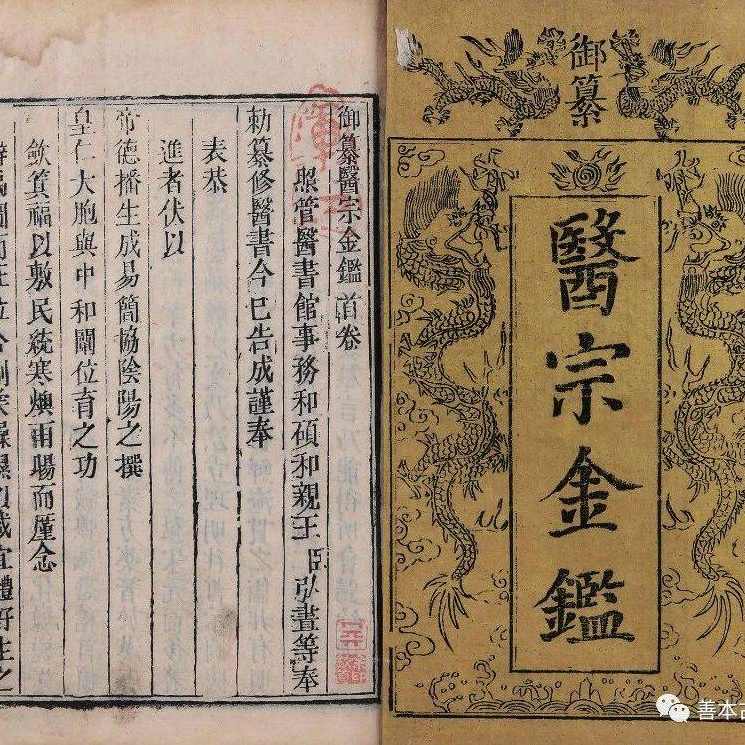 御纂
醫宗金鑑
御纂醫宗金鑑首卷
照管醫書館事務和碩和親王臣弘晝等奉
勅纂修醫書今已告成謹奉
表恭
進者伏以
帝德播生成易簡協陰陽之撰
皇仁大胞與中和闡位育之功
歛箕福以敷民統寒燠雨暘而廑念
宜體好生之
善本古